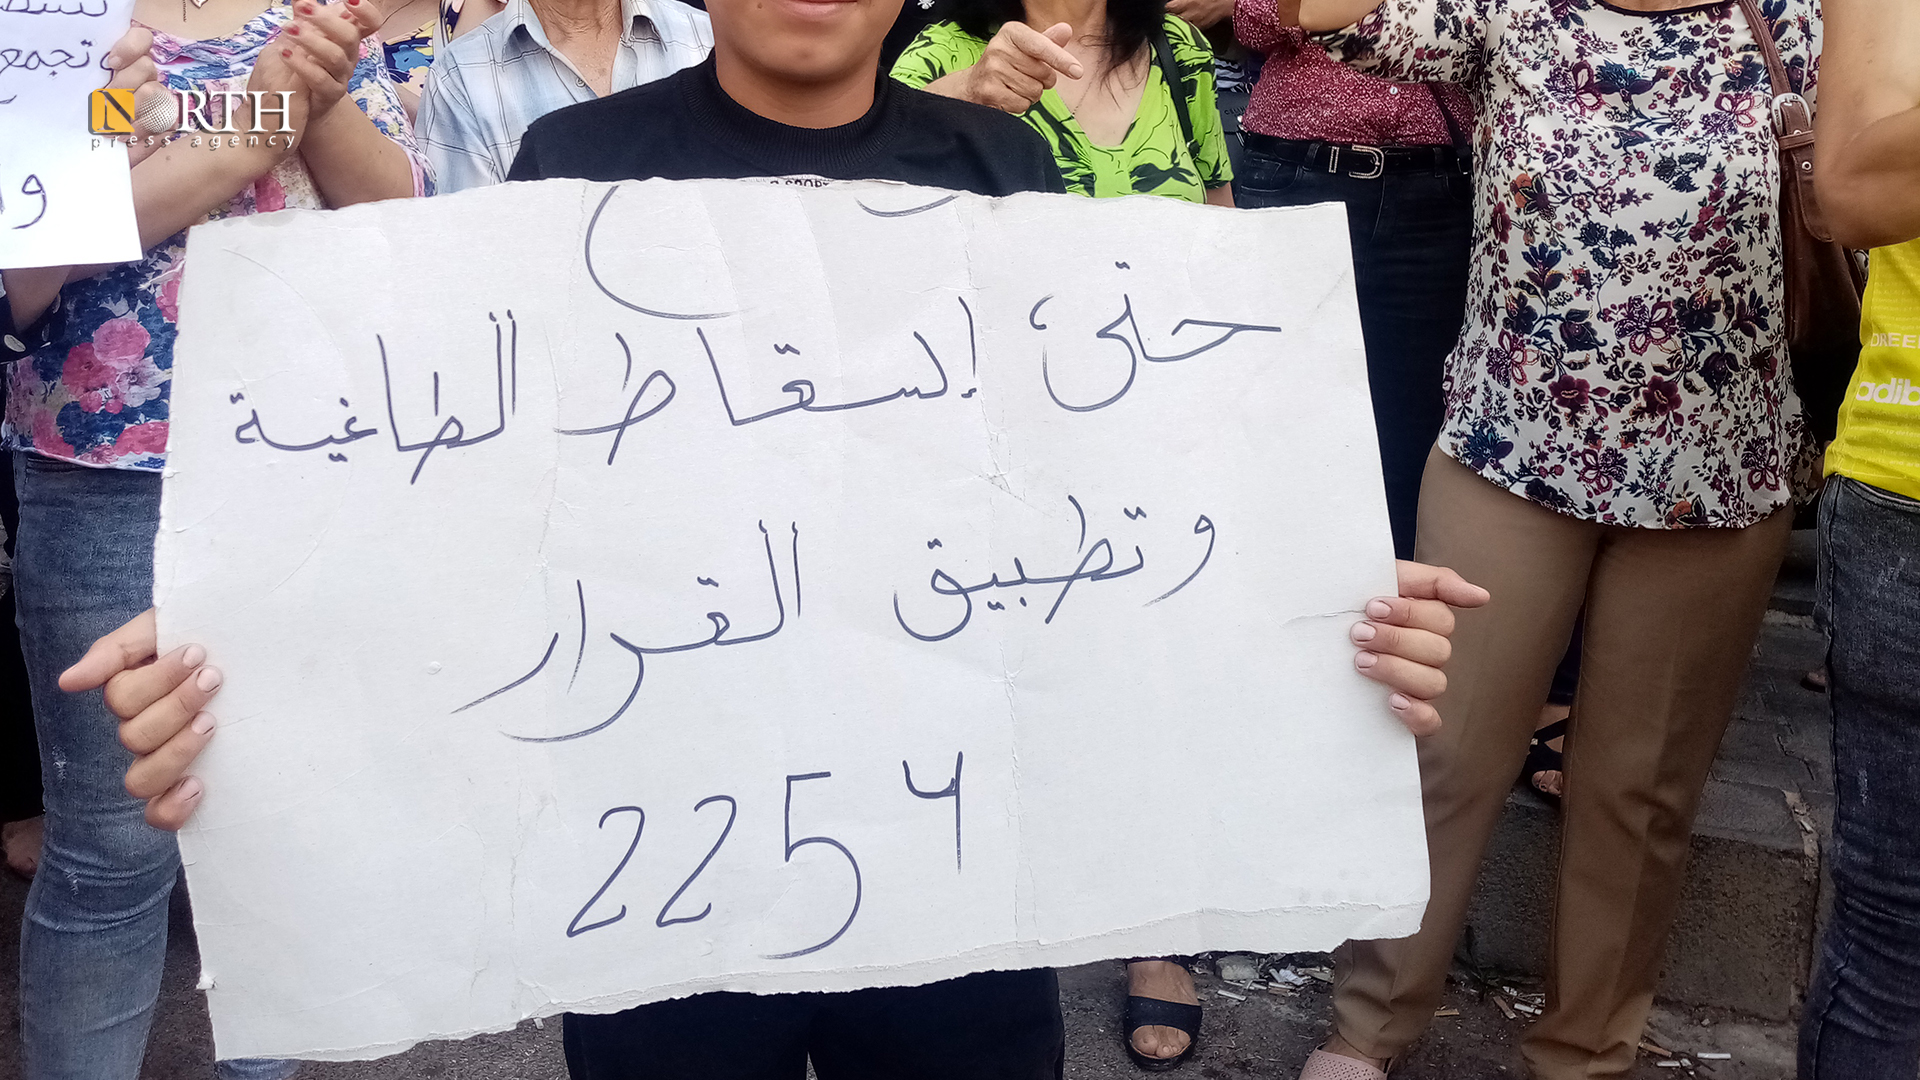 NORTH
press agency
وتجمع
حتى إسقاط الطاغية
وتطبيق القرار
2254
DREE
adib